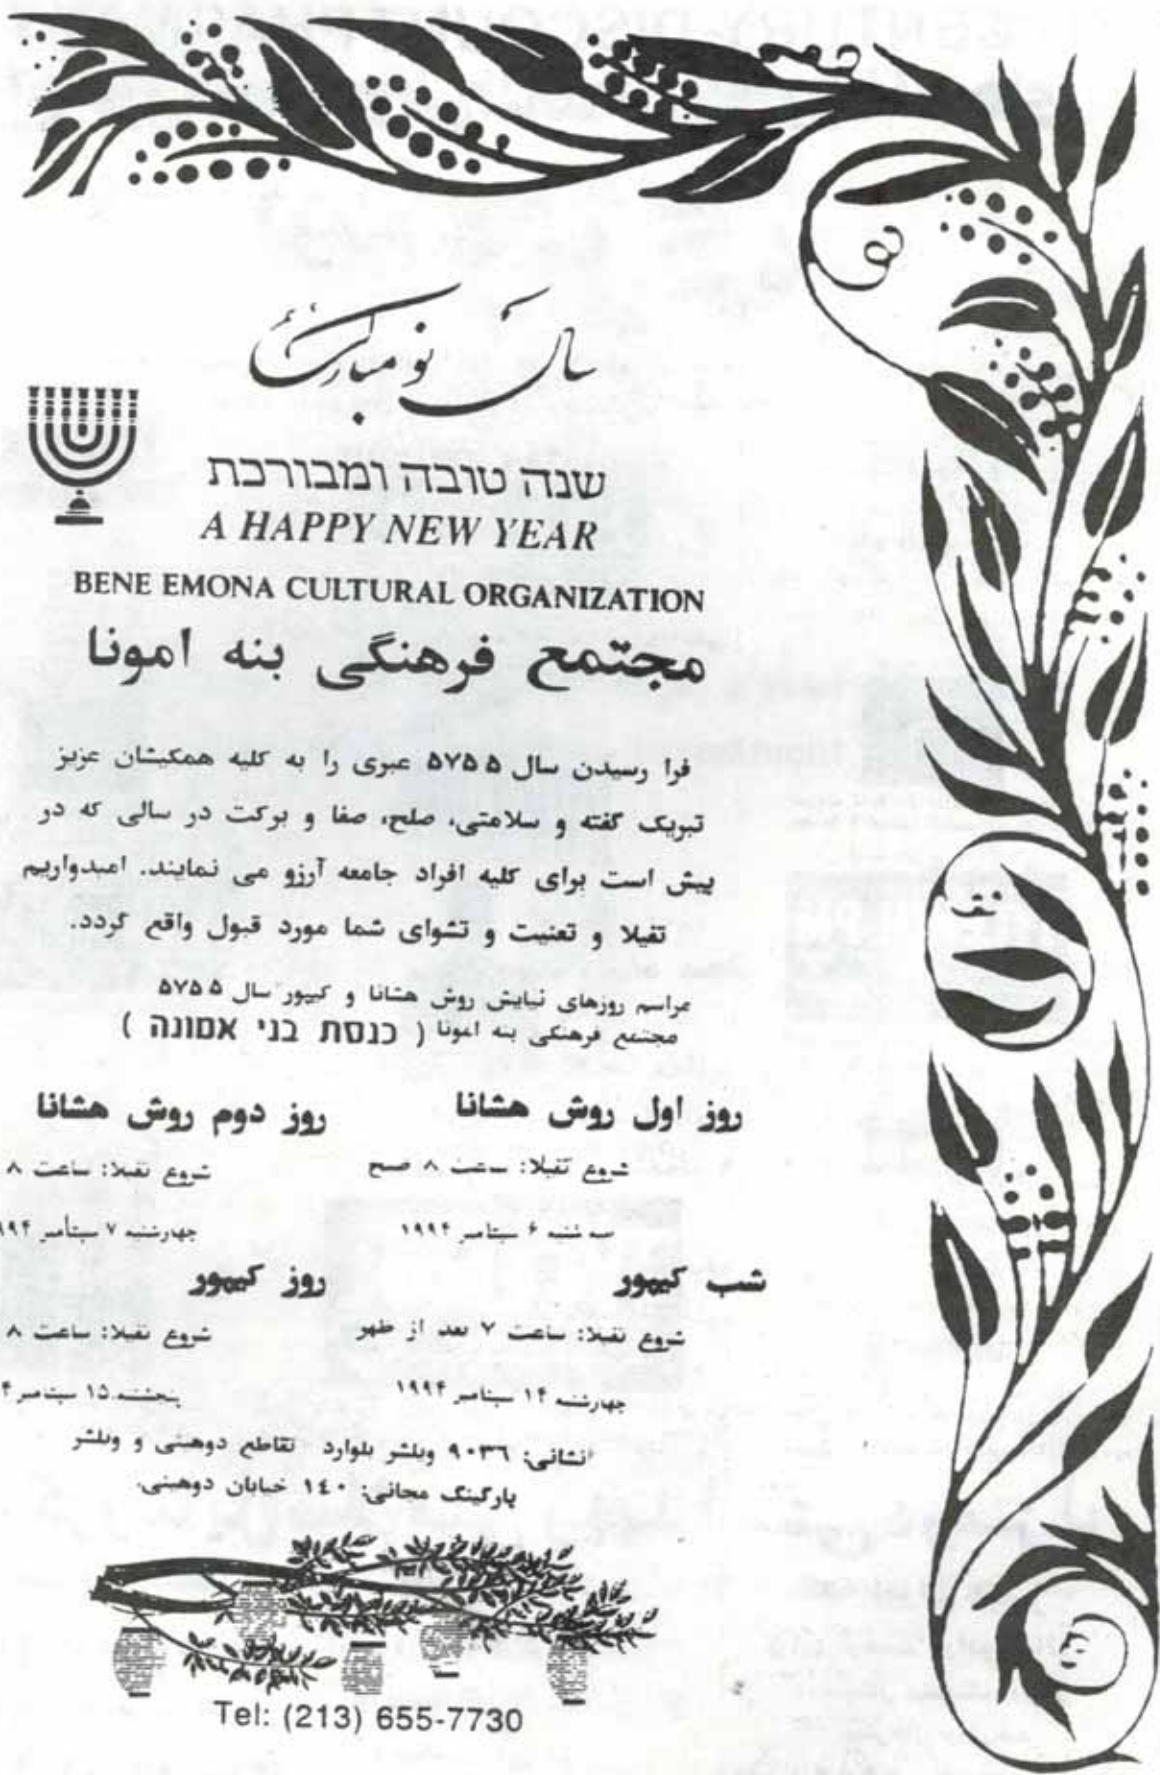 سال نو مبارک
שנה טובה ומבורכת
A HAPPY NEW YEAR
BENE EMONA CULTURAL ORGANIZATION
مجتمع فرهنگی بنه امونا
فرا رسیدن سال ۵۷۵۵ عبری را به کلیه همکیشان عزیز
تبریک گفته و سلامتی، صلح، صفا و برکت در سالی که در
پیش است برای کلیه افراد جامعه آرزو می نمایند. امیدواریم
تفیلا و تعنیت و تشوای شما مورد قبول واقع گردد.
مراسم روزهای نیایش روش هشانا و کیپور سال ۵۷۵۵
مجتمع فرهنگی بنه امونا ( כנסת בני אמונה )
روز اول روش هشانا
شروع تفیلا: ساعت ۸ صبح
سه شنبه ۶ سپتامبر ۱۹۹۴
روز دوم روش هشانا
شروع تفیلا: ساعت ۸
چهارشنبه ۷ سپتامبر
شب کیپور
شروع تفیلا: ساعت ۷ بعد از ظهر
چهارشنبه ۱۴ سپتامبر ۱۹۹۴
روز کیپور
شروع تفیلا: ساعت ۸
پنجشنبه ۱۵ سپتامبر
نشانی: ۹۰۳۶ ویلشر بلوارد تقاطع دوهینی و ویلشر
پارکینگ مجانی: ۱٤۰ خیابان دوهینی.
Tel: (213) 655-7730